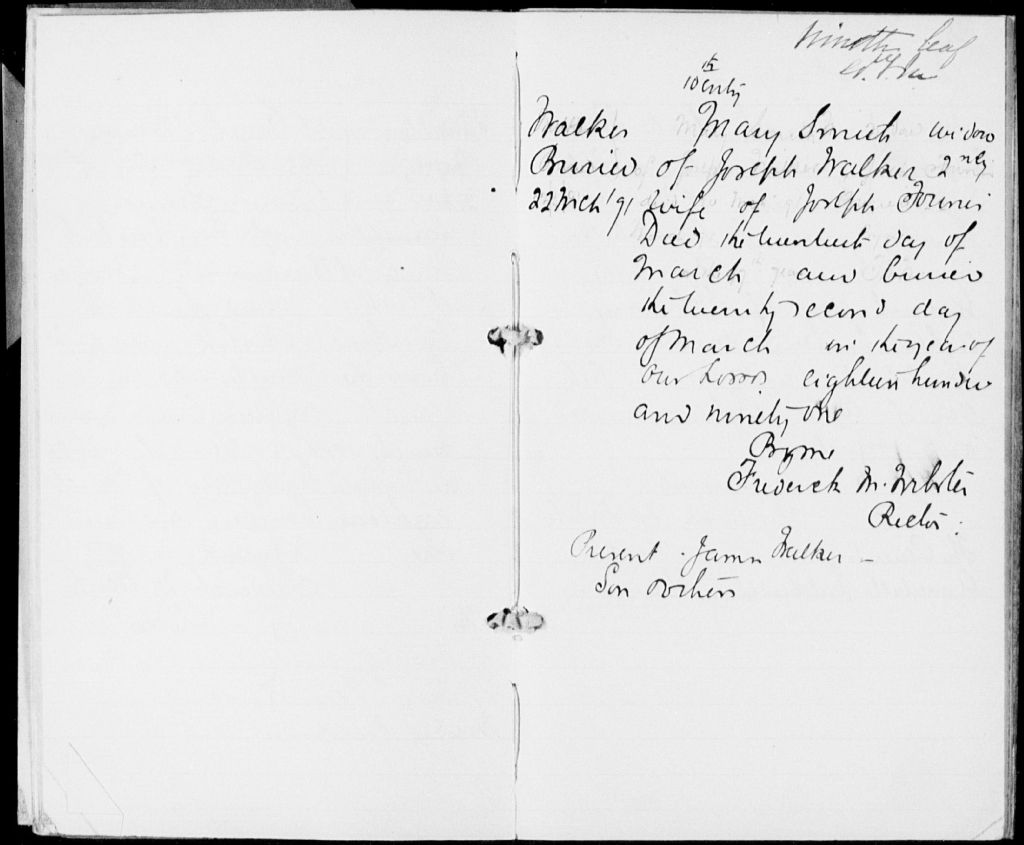 Nineth leaf
10th Entry
Walker Mary Smith widow
Buried of Joseph Walker 2ndly
22 Mch '91 wife of Joseph
Died the twentieth day of
March and buried
the twenty second day
of March in the year of
Our Lord eighteen hundred
and ninety one
By me
Frederick M. Webster
Rector:
Present . James Walker –
Son others